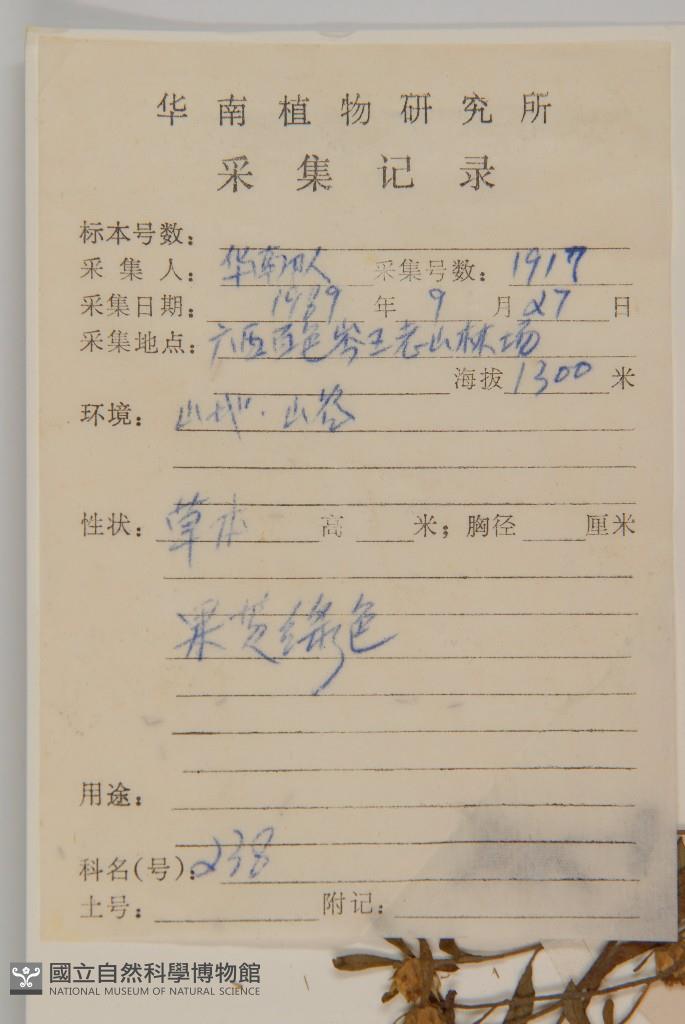 华南植物研究所
采集记录
标本号数：
采集人：华南四人 采集号数：1917
采集日期：1989年9月27日
采集地点：广西百色岑王老山林场
海拔1300米
环境：山地．山谷
性状：草本 高 米；胸径 厘米
果黄绿色
用途：
科名(号)：238
土号： 附记：
國立自然科學博物館
NATIONAL MUSEUM OF NATURAL SCIENCE